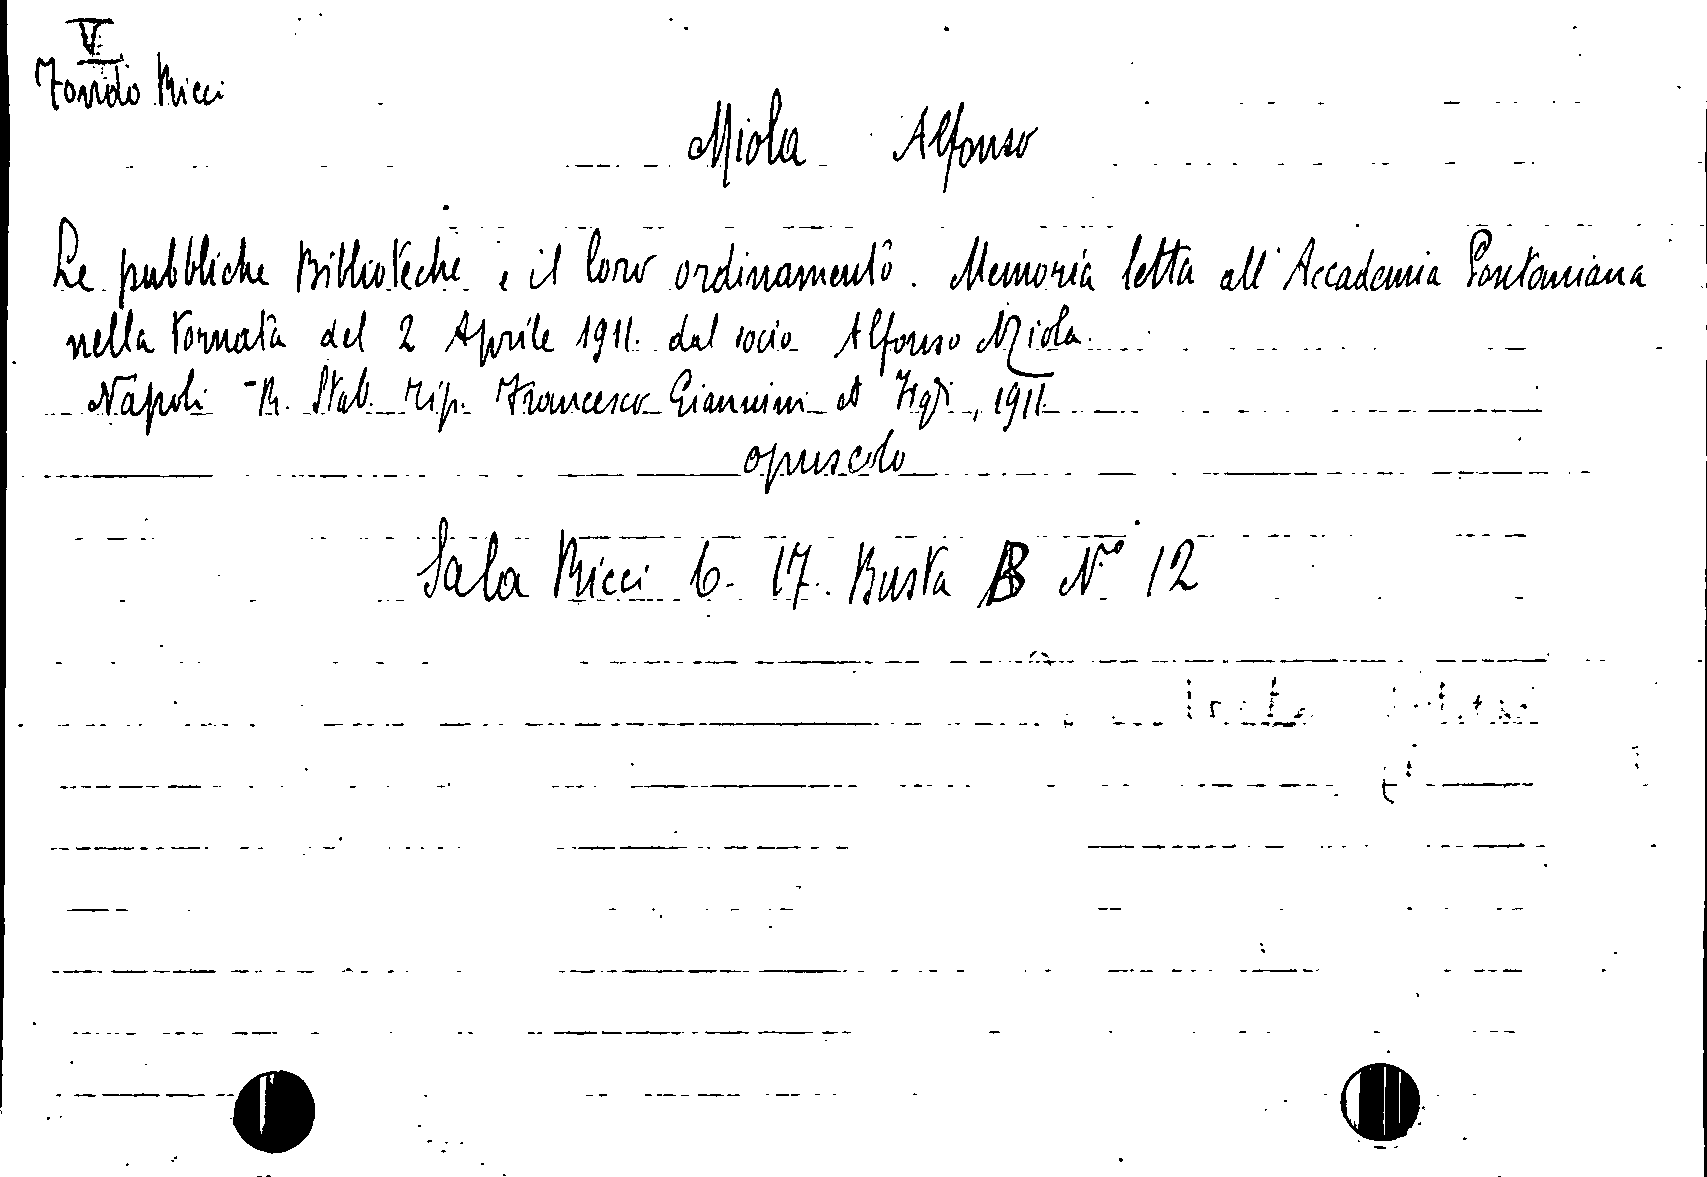 V
Fondo Ricci
Miola Alfonso
Le pubbliche Biblioteche e il loro ordinamento. Memoria letta all'Accademia Pontaniana
nella tornata del 2 Aprile 1911. dal socio Alfonso Miola.
Napoli - R. Stab. Tip. Francesco Giannini et Figli, 1911
opuscolo
Sala Ricci 6. 17. Busta B N° 12